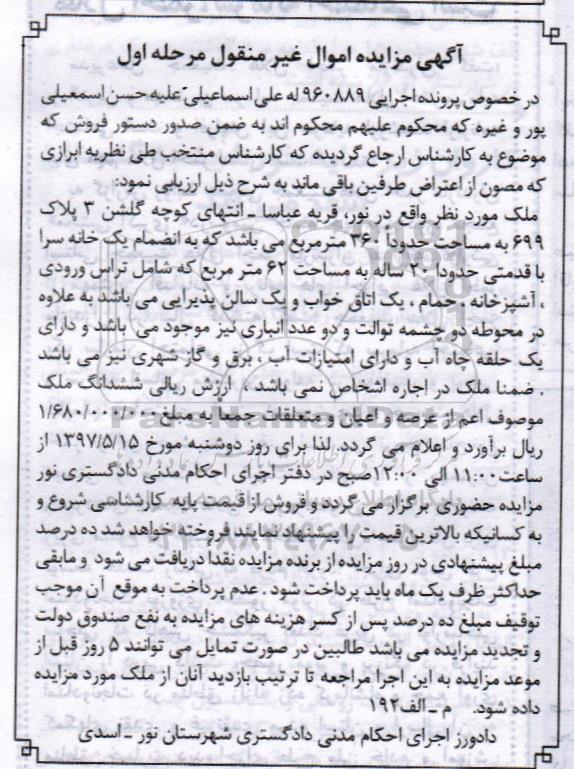 آگهی مزایده اموال غیر منقول مرحله اول
در خصوص پرونده اجرایی ۹۶۰۸۸۹ له علی اسماعیلی علیه حسن اسمعیلی
پور و غیره که محکوم علیهم محکوم اند به ضمن صدور دستور فروش که
موضوع به کارشناس ارجاع گردیده که کارشناس منتخب طی نظریه ابرازی
که مصون از اعتراض طرفین باقی ماند به شرح ذیل ارزیابی نمود:
ملک مورد نظر واقع در نور، قریه عباسا ـ انتهای کوچه گلشن ۳ پلاک
۶۹۹ به مساحت حدوداً ۳۶۰ مترمربع می باشد که به انضمام یک خانه سرا
با قدمتی حدودا ۲۰ ساله به مساحت ۶۲ متر مربع که شامل تراس ورودی
، آشپزخانه ، حمام ، یک اتاق خواب و یک سالن پذیرایی می باشد به علاوه
در محوطه دو چشمه توالت و دو عدد انباری نیز موجود می باشد و دارای
یک حلقه چاه آب و دارای امتیازات آب ، برق و گاز شهری نیز می باشد
. ضمنا ملک در اجاره اشخاص نمی باشد ، ارزش ریالی ششدانگ ملک
موصوف اعم از عرصه و اعیان و متعلقات جمعا به مبلغ ۱/۶۸۰/۰۰۰/۰۰۰
ریال برآورد و اعلام می گردد. لذا برای روز دوشنبه مورخ ۱۳۹۷/۵/۱۵ از
ساعت ۱۱:۰۰ الی ۱۲:۰۰ صبح در دفتر اجرای احکام مدنی دادگستری نور
مزایده حضوری برگزار می گردد و فروش از قیمت پایه کارشناسی شروع و
به کسانیکه بالاترین قیمت را پیشنهاد نمایند فروخته خواهد شد ده درصد
مبلغ پیشنهادی در روز مزایده از برنده مزایده نقداً دریافت می شود و مابقی
حداکثر ظرف یک ماه باید پرداخت شود . عدم پرداخت به موقع آن موجب
توقیف مبلغ ده درصد پس از کسر هزینه های مزایده به نفع صندوق دولت
و تجدید مزایده می باشد طالبین در صورت تمایل می توانند ۵ روز قبل از
موعد مزایده به این اجرا مراجعه تا ترتیب بازدید آنان از ملک مورد مزایده
داده شود. م ـ الف ۱۹۲
دادورز اجرای احکام مدنی دادگستری شهرستان نور ـ اسدی
ParsNamadData